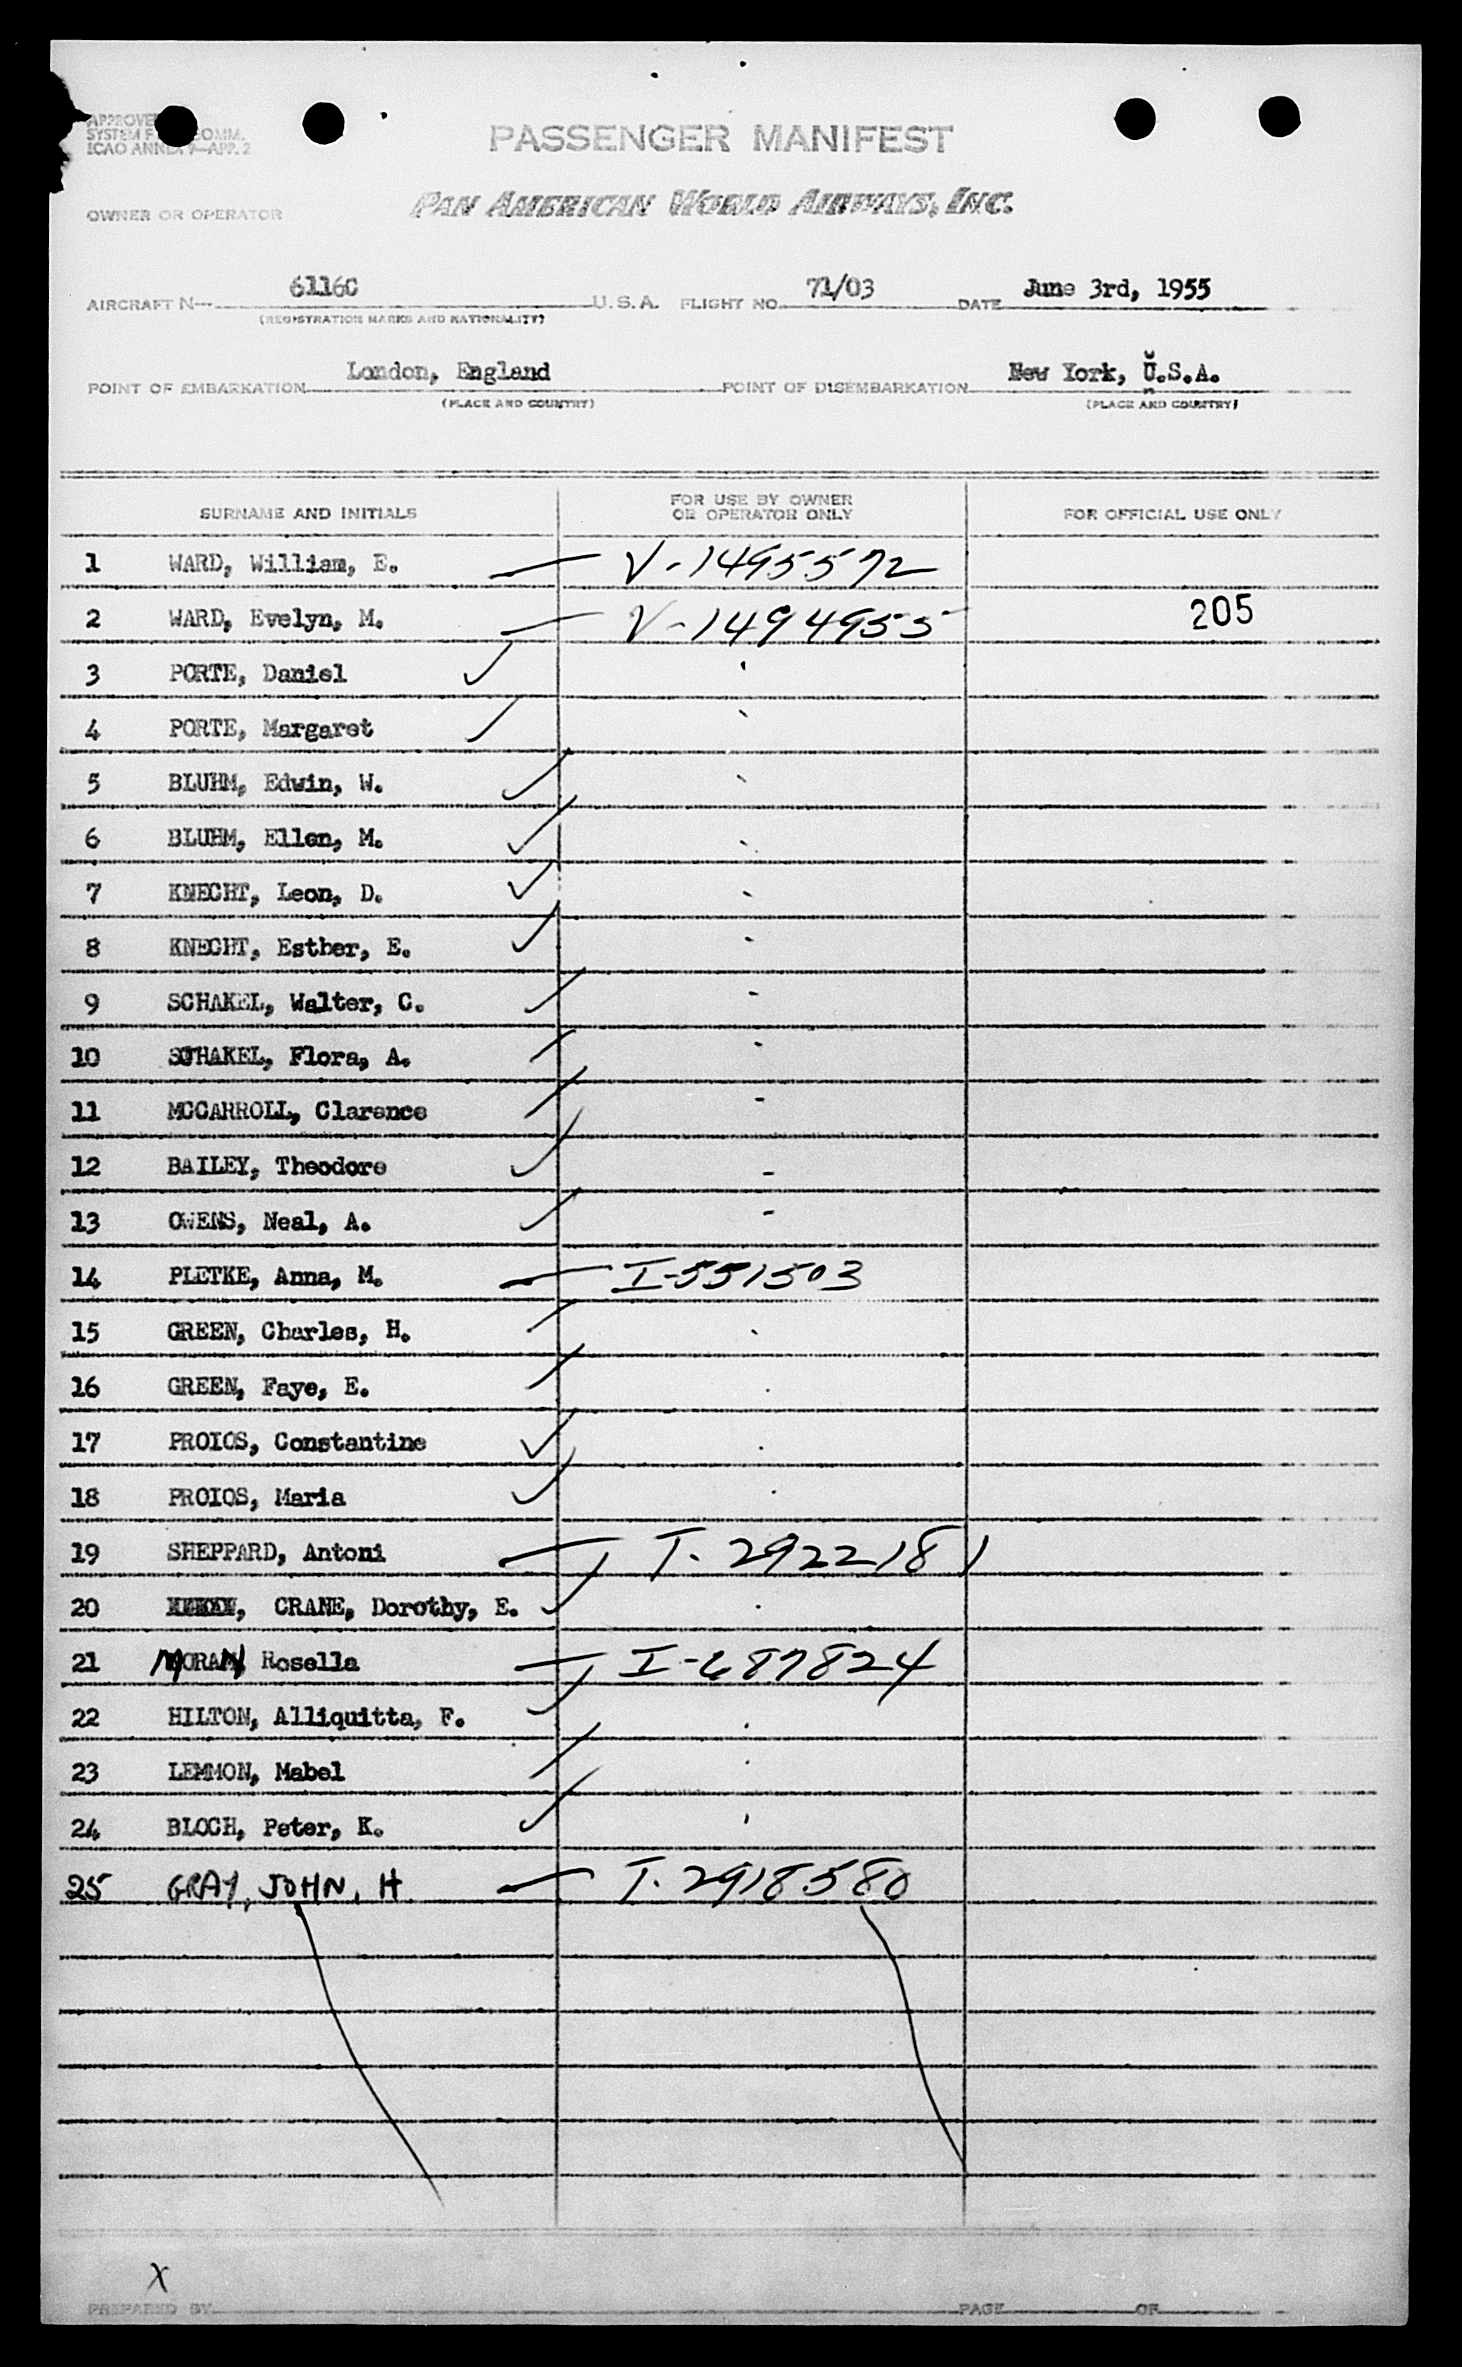 PASSENGER MANIFEST
APPROVED
SYSTEM F COMM.
ICAO ANNEX 9—APP. 2
OWNER OR OPERATOR PAN AMERICAN WORLD AIRWAYS, INC.
AIRCRAFT N— 6116C U.S.A. FLIGHT NO. 71/03 DATE June 3rd, 1955
(REGISTRATION MARKS AND NATIONALITY)
POINT OF EMBARKATION London, England POINT OF DISEMBARKATION New York, U.S.A.
(PLACE AND COUNTRY) (PLACE AND COUNTRY)
SURNAME AND INITIALS FOR USE BY OWNER OR OPERATOR ONLY FOR OFFICIAL USE ONLY
1 WARD, William, E. V-1495572
2 WARD, Evelyn, M. V-1494955 205
3 PORTE, Daniel
4 PORTE, Margaret
5 BLUHM, Edwin, W.
6 BLUHM, Ellen, M.
7 KNECHT, Leon, D.
8 KNECHT, Esther, E.
9 SCHAKEL, Walter, C.
10 SCHAKEL, Flora, A.
11 MCCARROLL, Clarence
12 BAILEY, Theodore
13 OWENS, Neal, A.
14 PLETKE, Anna, M. I-551503
15 GREEN, Charles, H.
16 GREEN, Faye, E.
17 PROIOS, Constantine
18 PROIOS, Maria
19 SHEPPARD, Antoni I-2922181
20 CRANE, Dorothy, E.
21 MORAN, Rosella I-687824
22 HILTON, Alliquitta, F.
23 LEMMON, Mabel
24 BLOCH, Peter, K.
25 GRAY, JOHN, H I-2918580
X
PREPARED BY PAGE OF